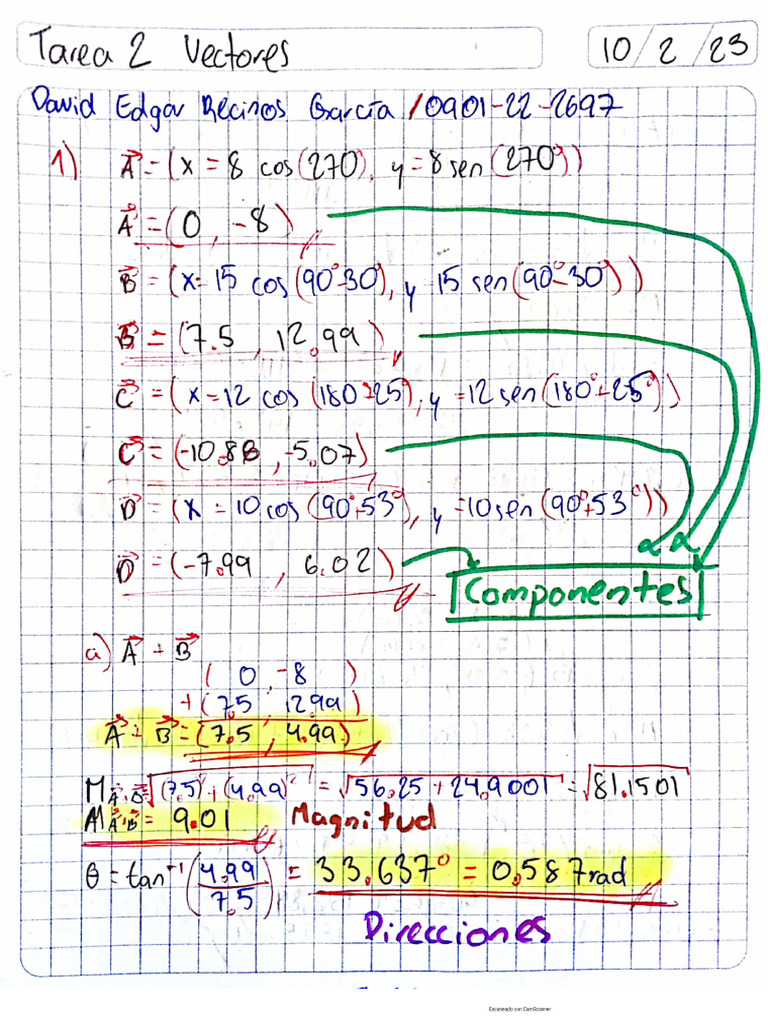 Tarea 2 Vectores 10/2/23
David Edgar Recinos García /0901-22-2697
1) A⃗=(x=8 cos(270), y=8sen(270°))
A⃗=(0, -8)
B⃗=(x=15 cos(90°-30°), y 15 sen(90°-30°))
B⃗=(7.5, 12.99)
C⃗=(x=12 cos(180+25°), y=12sen(180°+25°))
C⃗=(-10.88, -5.07)
D⃗=(x=10cos(90°+53°), y=10sen(90°+53°))
D⃗=(-7.99, 6.02)
Componentes
a) A⃗ + B⃗
(0, -8)
+(7.5, 12.99)
A⃗ + B⃗=(7.5, 4.99)
M A⃗+B⃗=√(7.5)²+(4.99)² = √56.25+24.9001 = √81.1501
M A⃗+B⃗= 9.01 Magnitud
θ = tan⁻¹(4.99/7.5) = 33.637° = 0.587rad
Direcciones
Escaneado con CamScanner